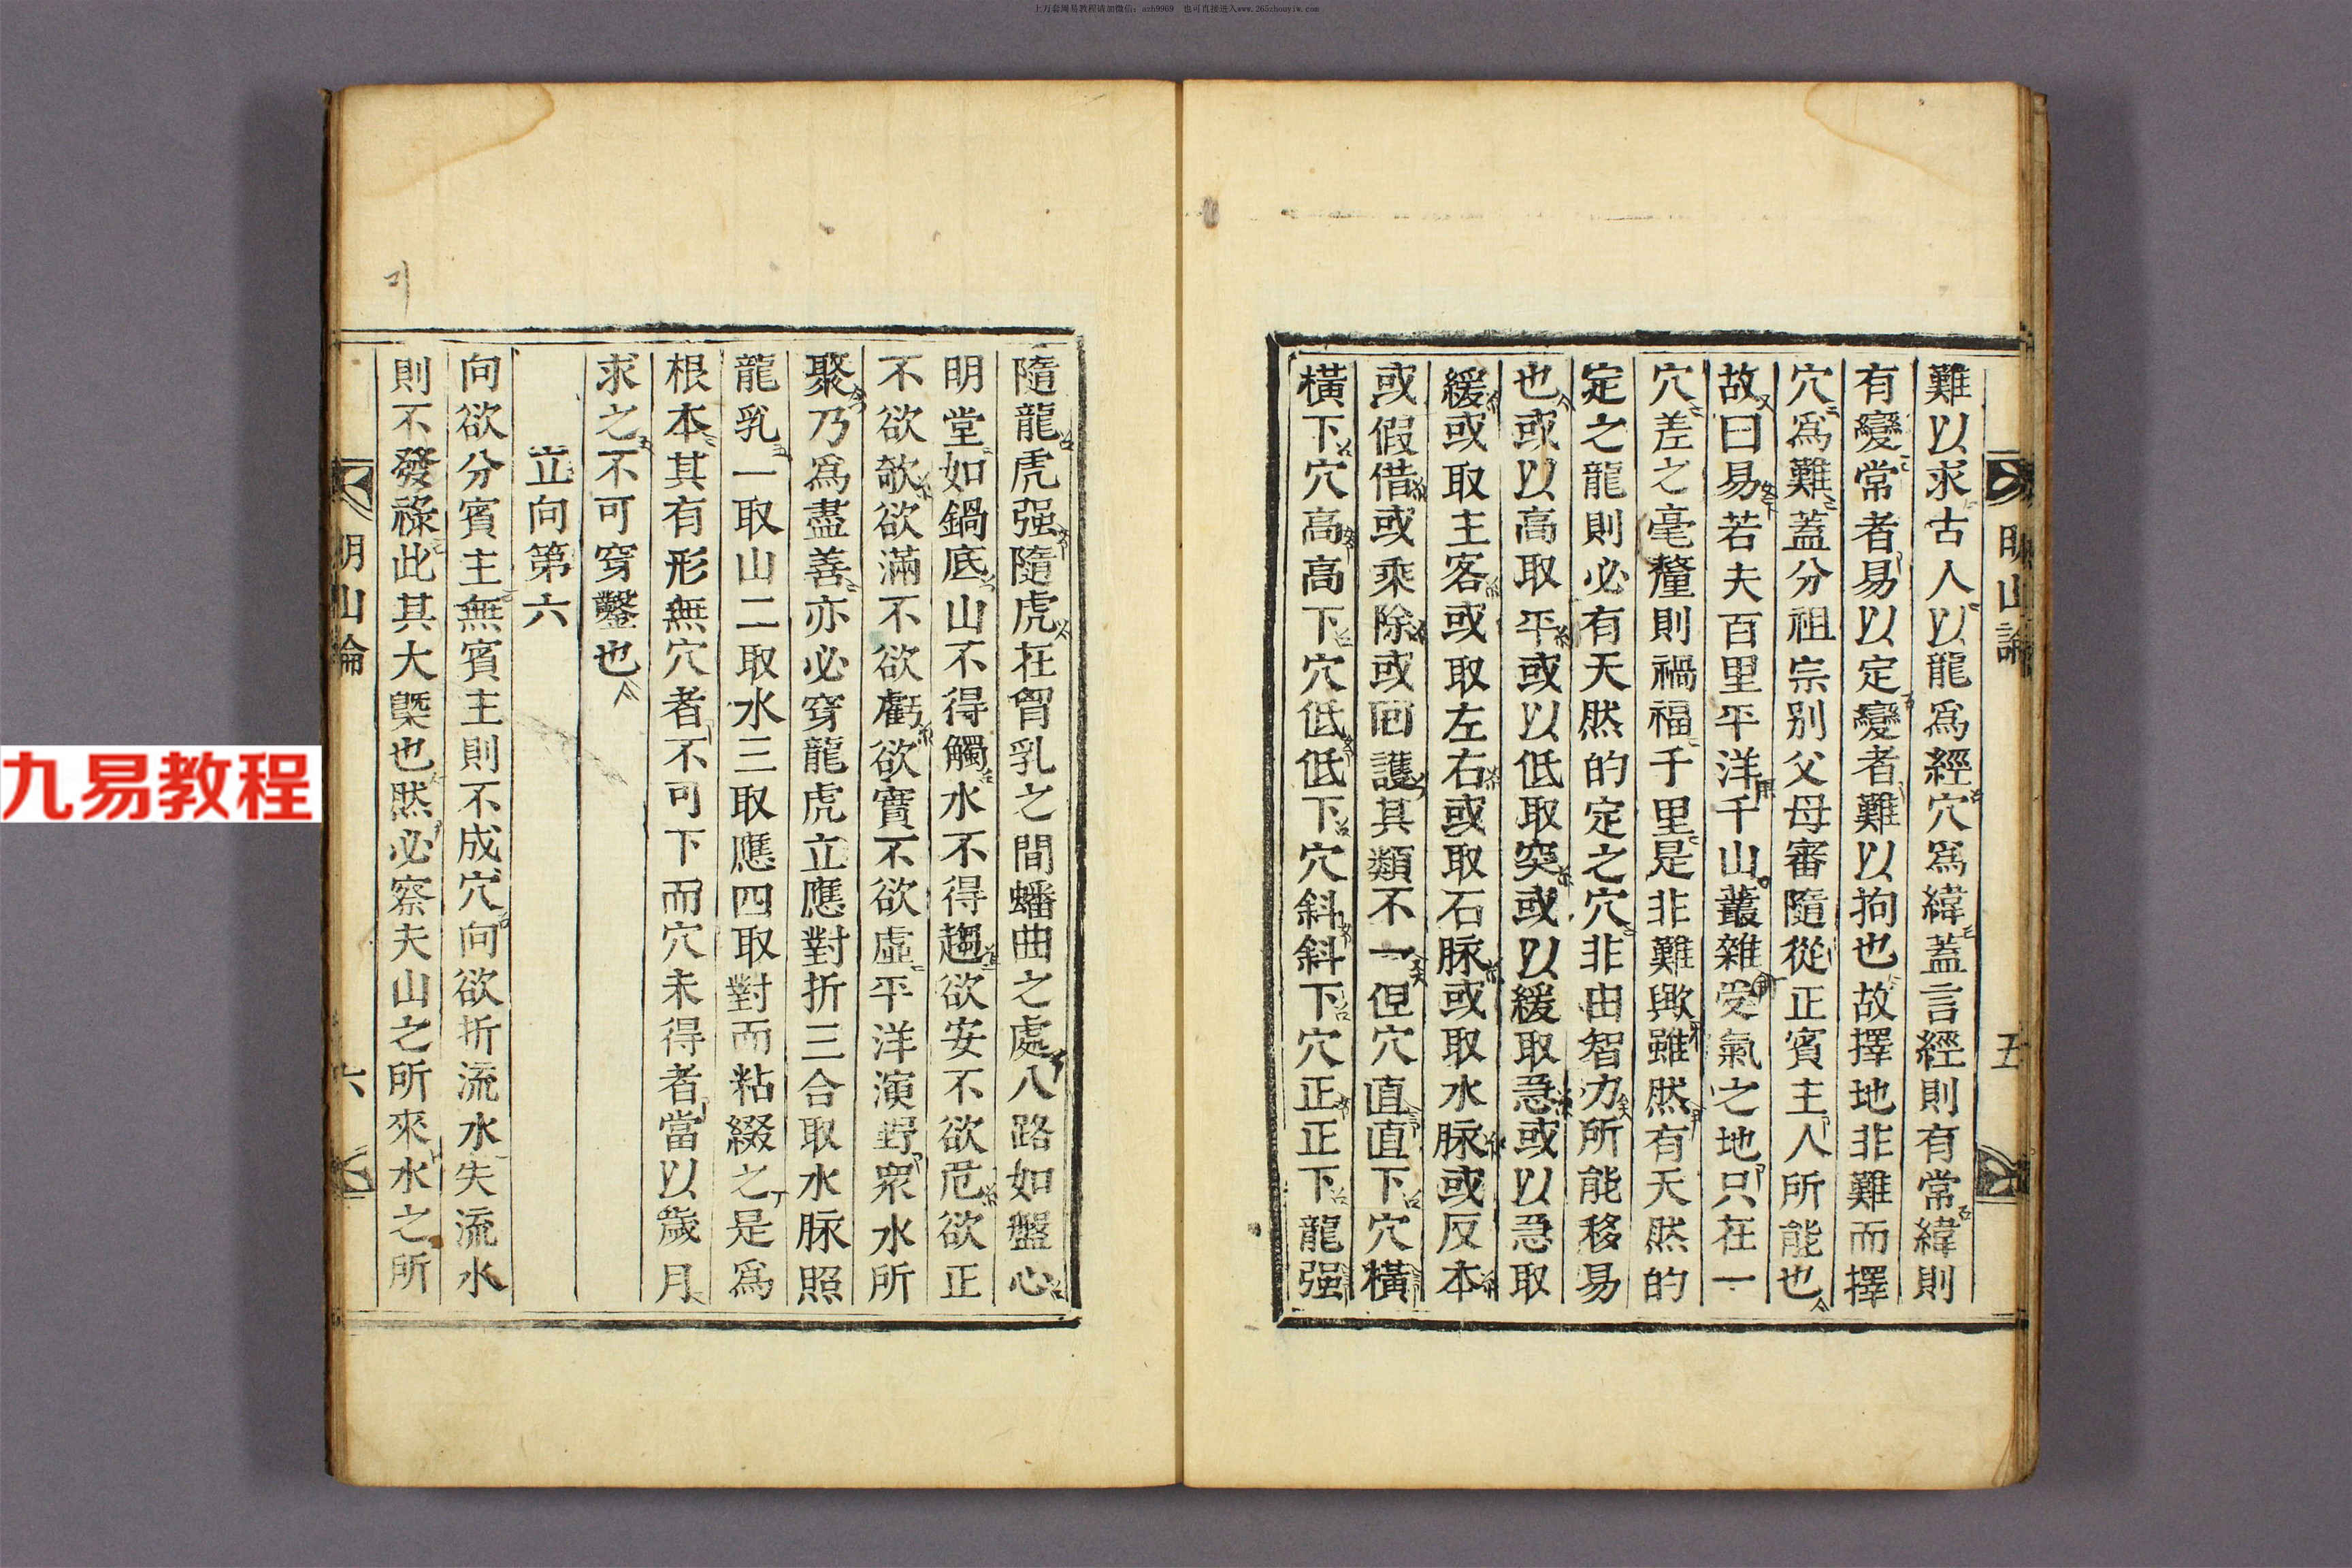 上万套周易教程请加微信：azh9969　也可直接进入www.265zhouyiw.com
明山論
五
難以求古人以龍爲經穴爲緯蓋言經則有常緯則
有變常者易以定變者難以拘也故擇地非難而擇
穴爲難蓋分祖宗别父母審隨從正賓主人所能也
故曰易若夫百里平洋千山叢雜受氣之地只在一
穴差之毫釐則禍福千里是非難歟雖然有天然的
定之龍則必有天然的定之穴非由智力所能移易
也或以高取平或以低取突或以緩取急或以急取
緩或取主客或取左右或取石脉或取水脉或反本
或假借或乘除或回護其類不一但穴直直下穴橫
橫下穴高高下穴低低下穴斜斜下穴正正下龍强
隨龍虎强隨虎在胷乳之間蟠曲之處八路如盤心
明堂如鍋底山不得觸水不得趨欲安不欲危欲正
不欲欹欲滿不欲虧欲實不欲虛平洋演野衆水所
聚乃爲盡善亦必穿龍虎立應對折三合取水脉照
龍乳一取山二取水三取應四取對而粘綴之是爲
根本其有形無穴者不可下而穴未得者當以歲月
求之不可穿鑿也
立向第六
向欲分賓主無賓主則不成穴向欲折流水失流水
則不發祿此其大槩也然必察夫山之所來水之所
明山論
六
九易教程